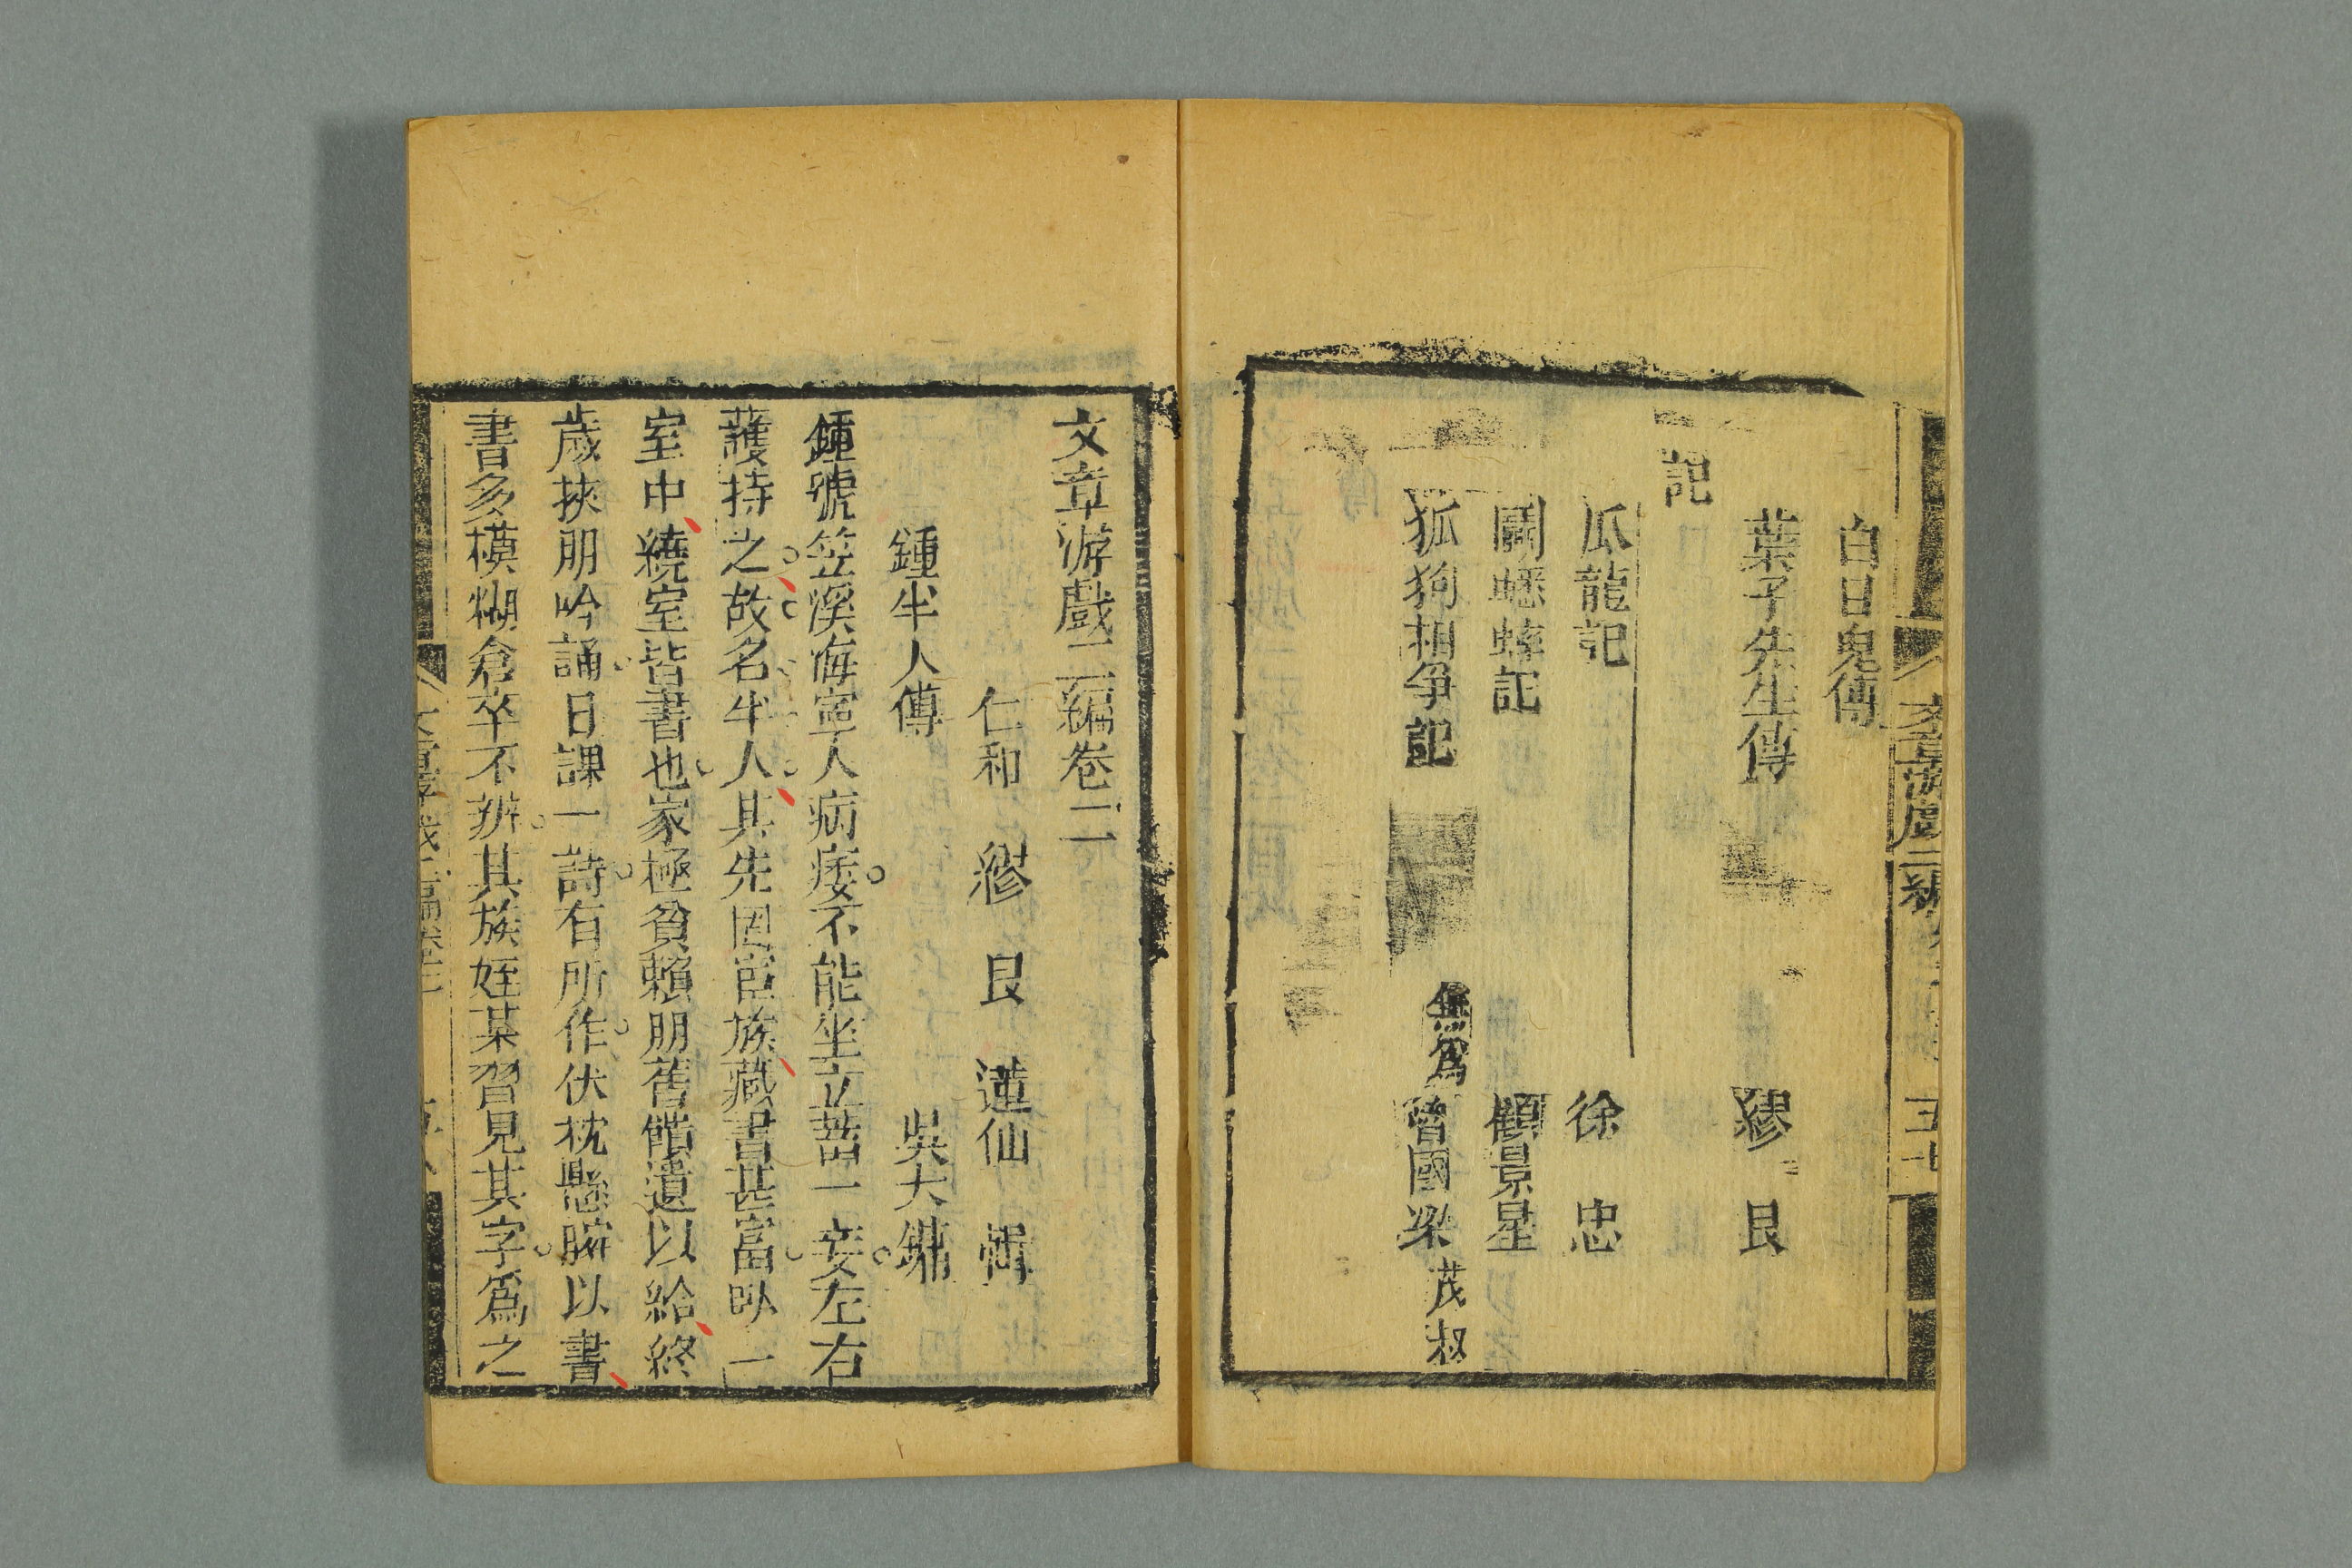 白日鬼傳
葉子先生傳 繆 艮
記
瓜龍記 徐 忠
鬭蟋蟀記 顧景星
狐狗相爭記 無爲 晉國梁 茂叔
文章游戲二編卷二
仁和 繆 艮 蓮仙 輯
鍾半人傳 吳大鏞
鍾號笠溪海寧人病痿不能坐立蓄一妾左右
護持之故名半人其先固宦族藏書甚富臥一
室中繞室皆書也家極貧賴朋舊饋遺以給終
歲挾册吟誦日課一詩有所作伏枕懸腕以書
書多模糊倉卒不辨其族姪某習見其字爲之